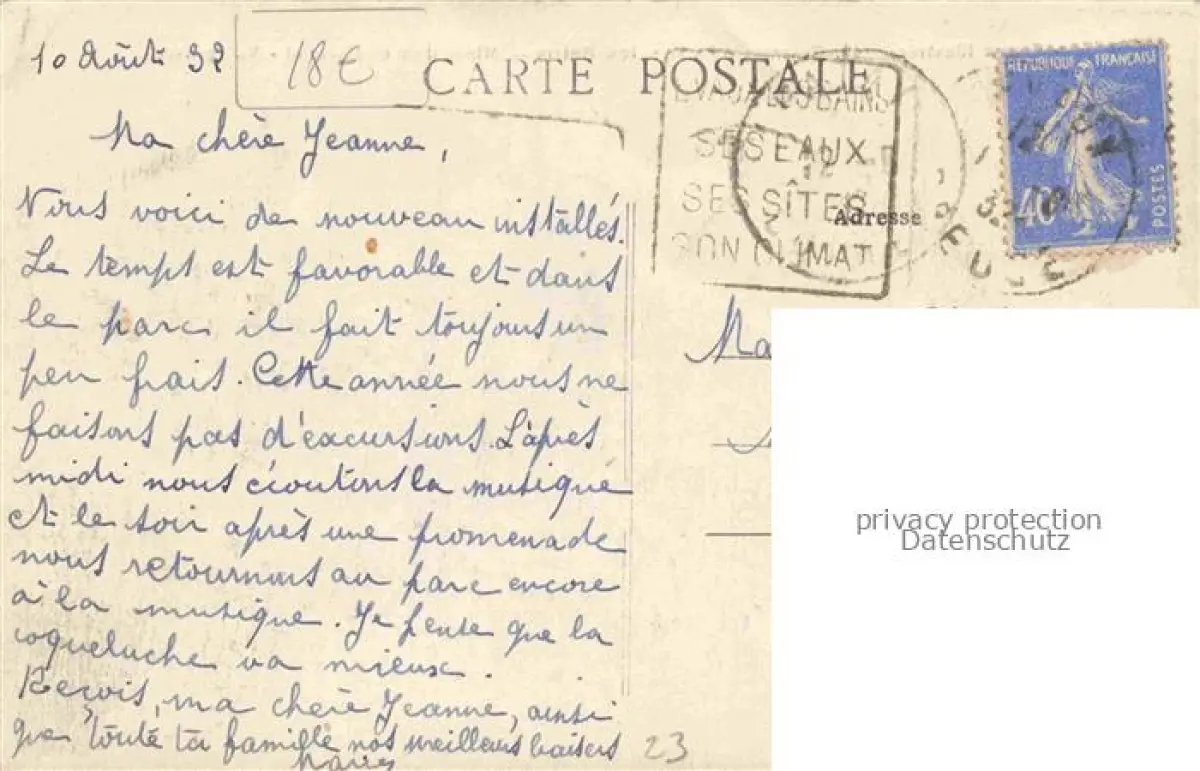 10 Août 32
18€
CARTE POSTALE
Ma chère Jeanne,
Nous voici de nouveau installés.
Le temps est favorable et dans
le parc il fait toujours un
peu frais. Cette année nous ne
faisons pas d'excursions. L'après
midi nous écoutons la musique
et le soir après une promenade
nous retournons au parc encore
à la musique. Je pense que la
coqueluche va mieux.
Reçois, ma chère Jeanne, ainsi
que toute ta famille nos meilleurs baisers
23
BAINS
SES EAUX
SES SÎTES
SON CLIMAT
Adresse
REPUBLIQUE FRANÇAISE
40c
POSTES
CREUSE
Ma
privacy protection
Datenschutz